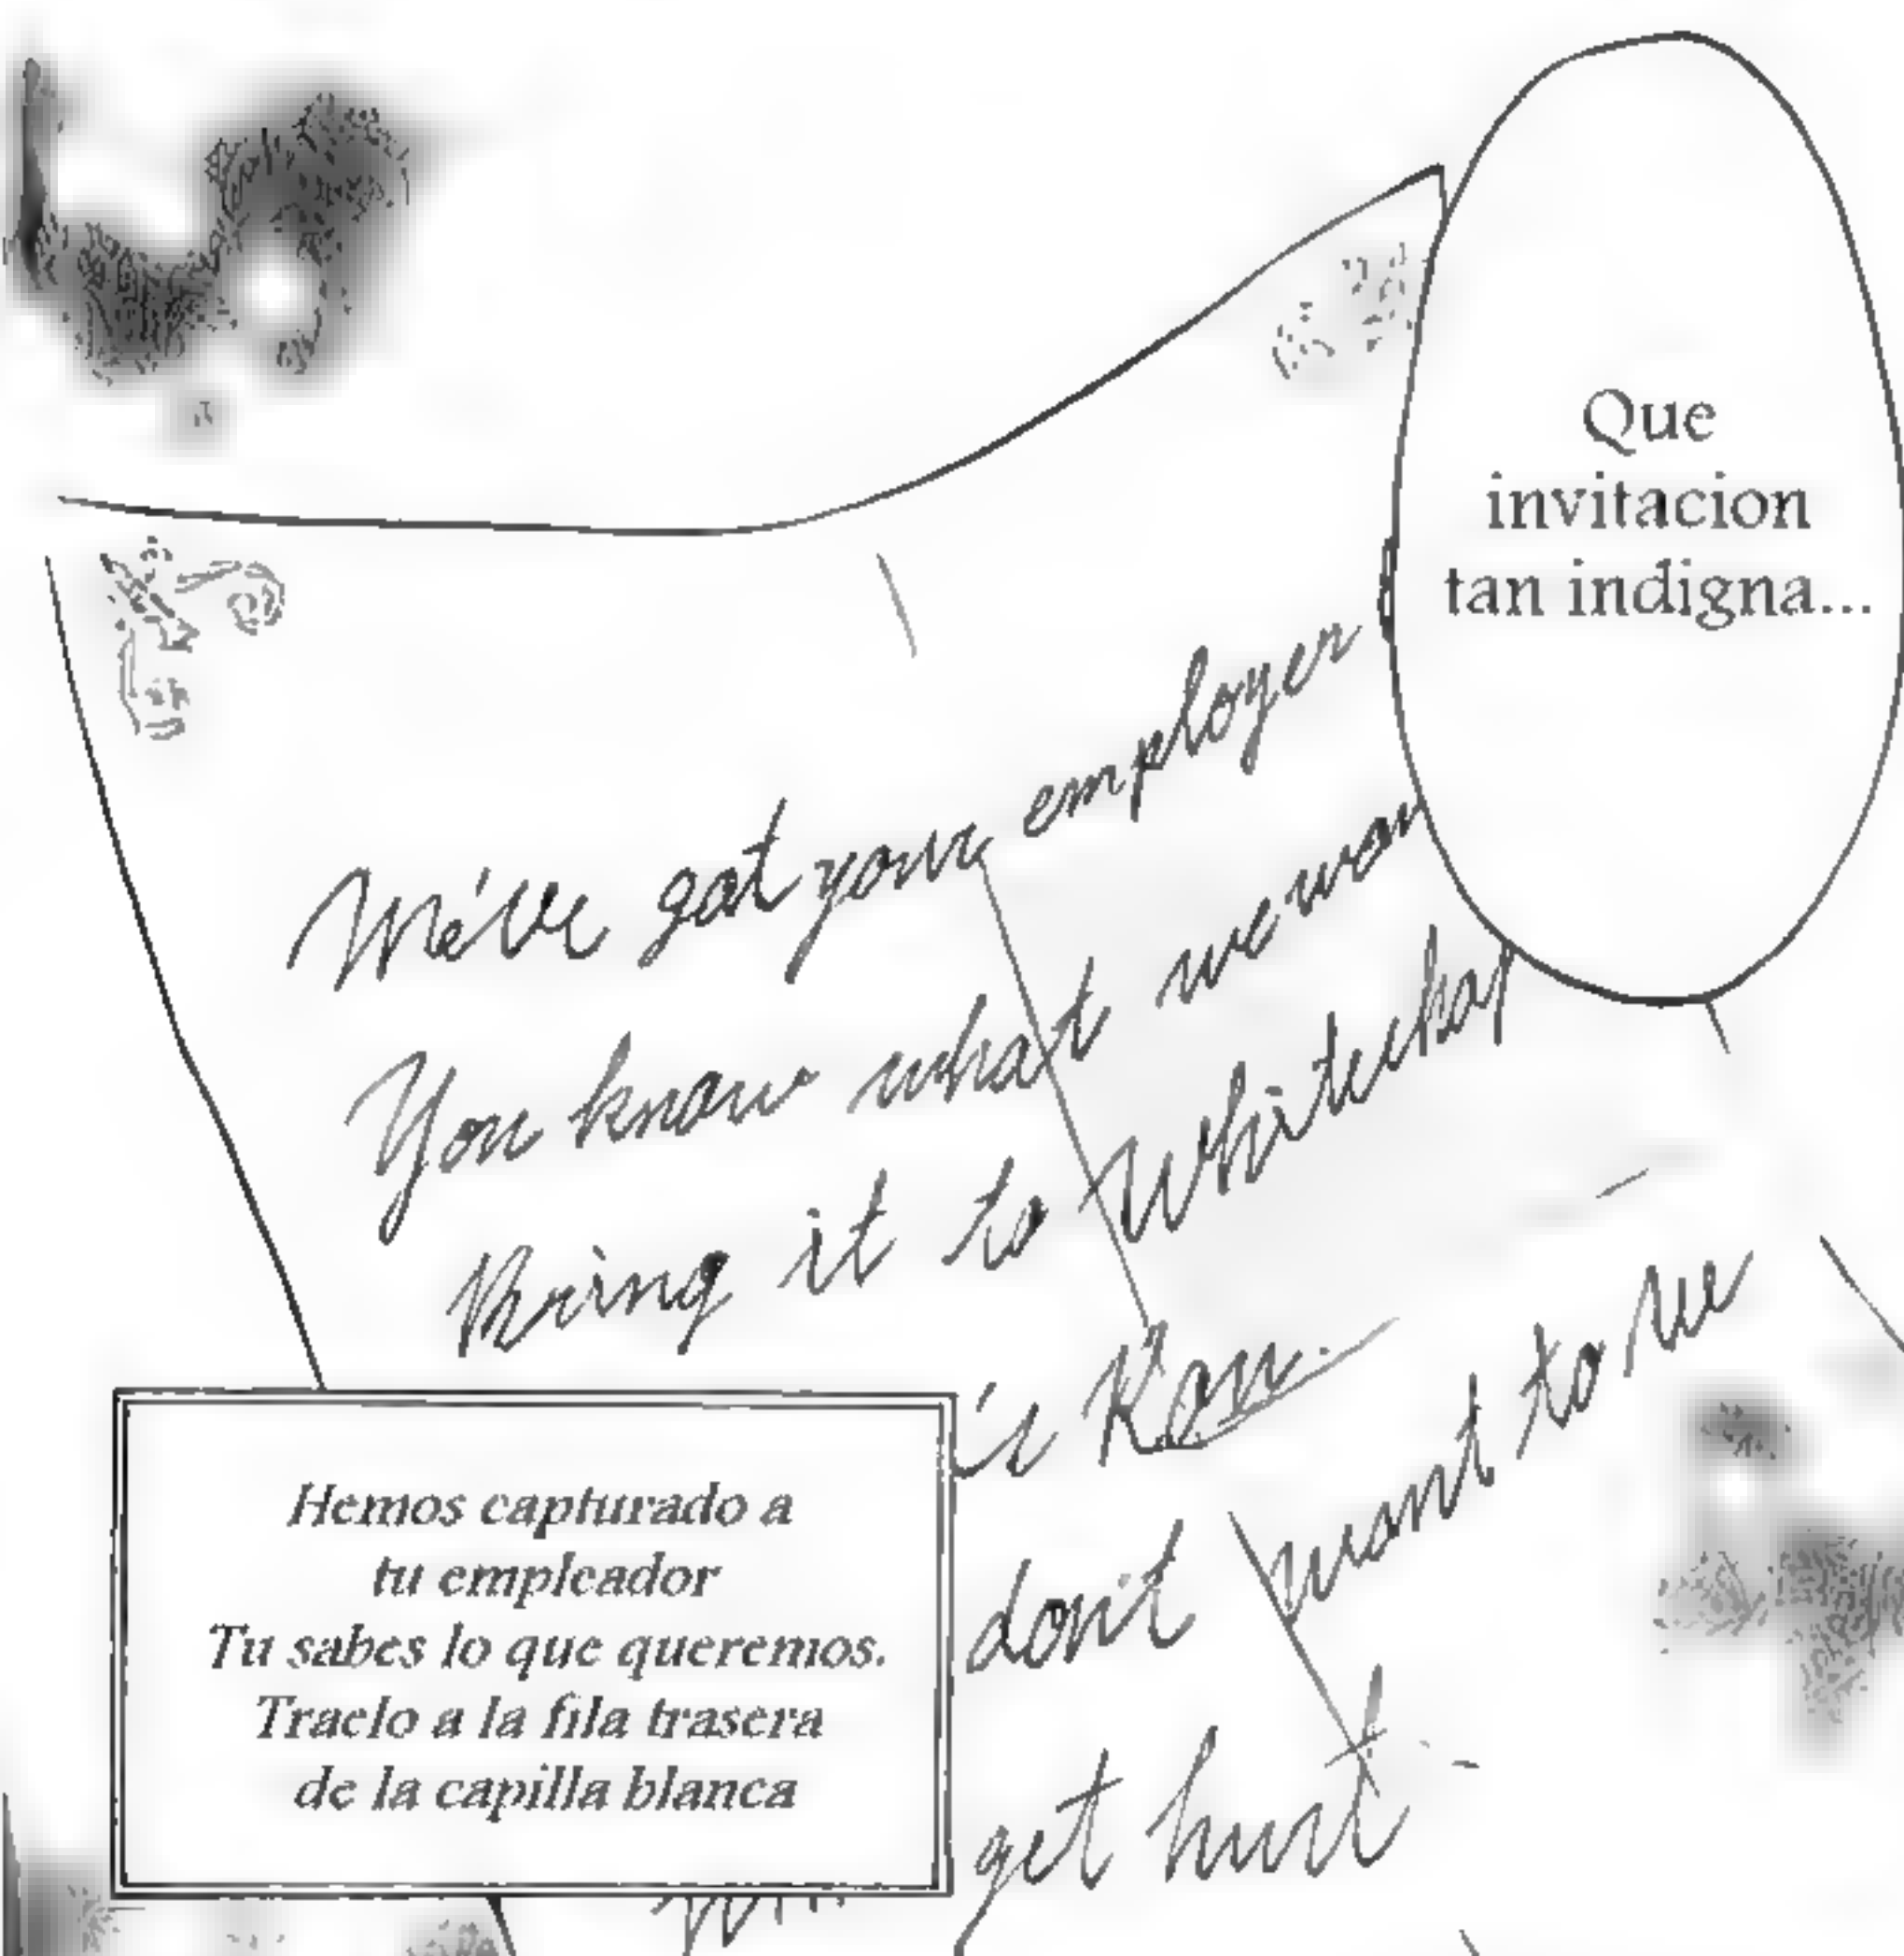 Que
invitacion
tan indigna...
We've got your employer
You know what we wan
Bring it to Whitechap
Ron.
don't want to see
get hurt
Hemos capturado a
tu empleador
Tu sabes lo que queremos.
Traelo a la fila trasera
de la capilla blanca